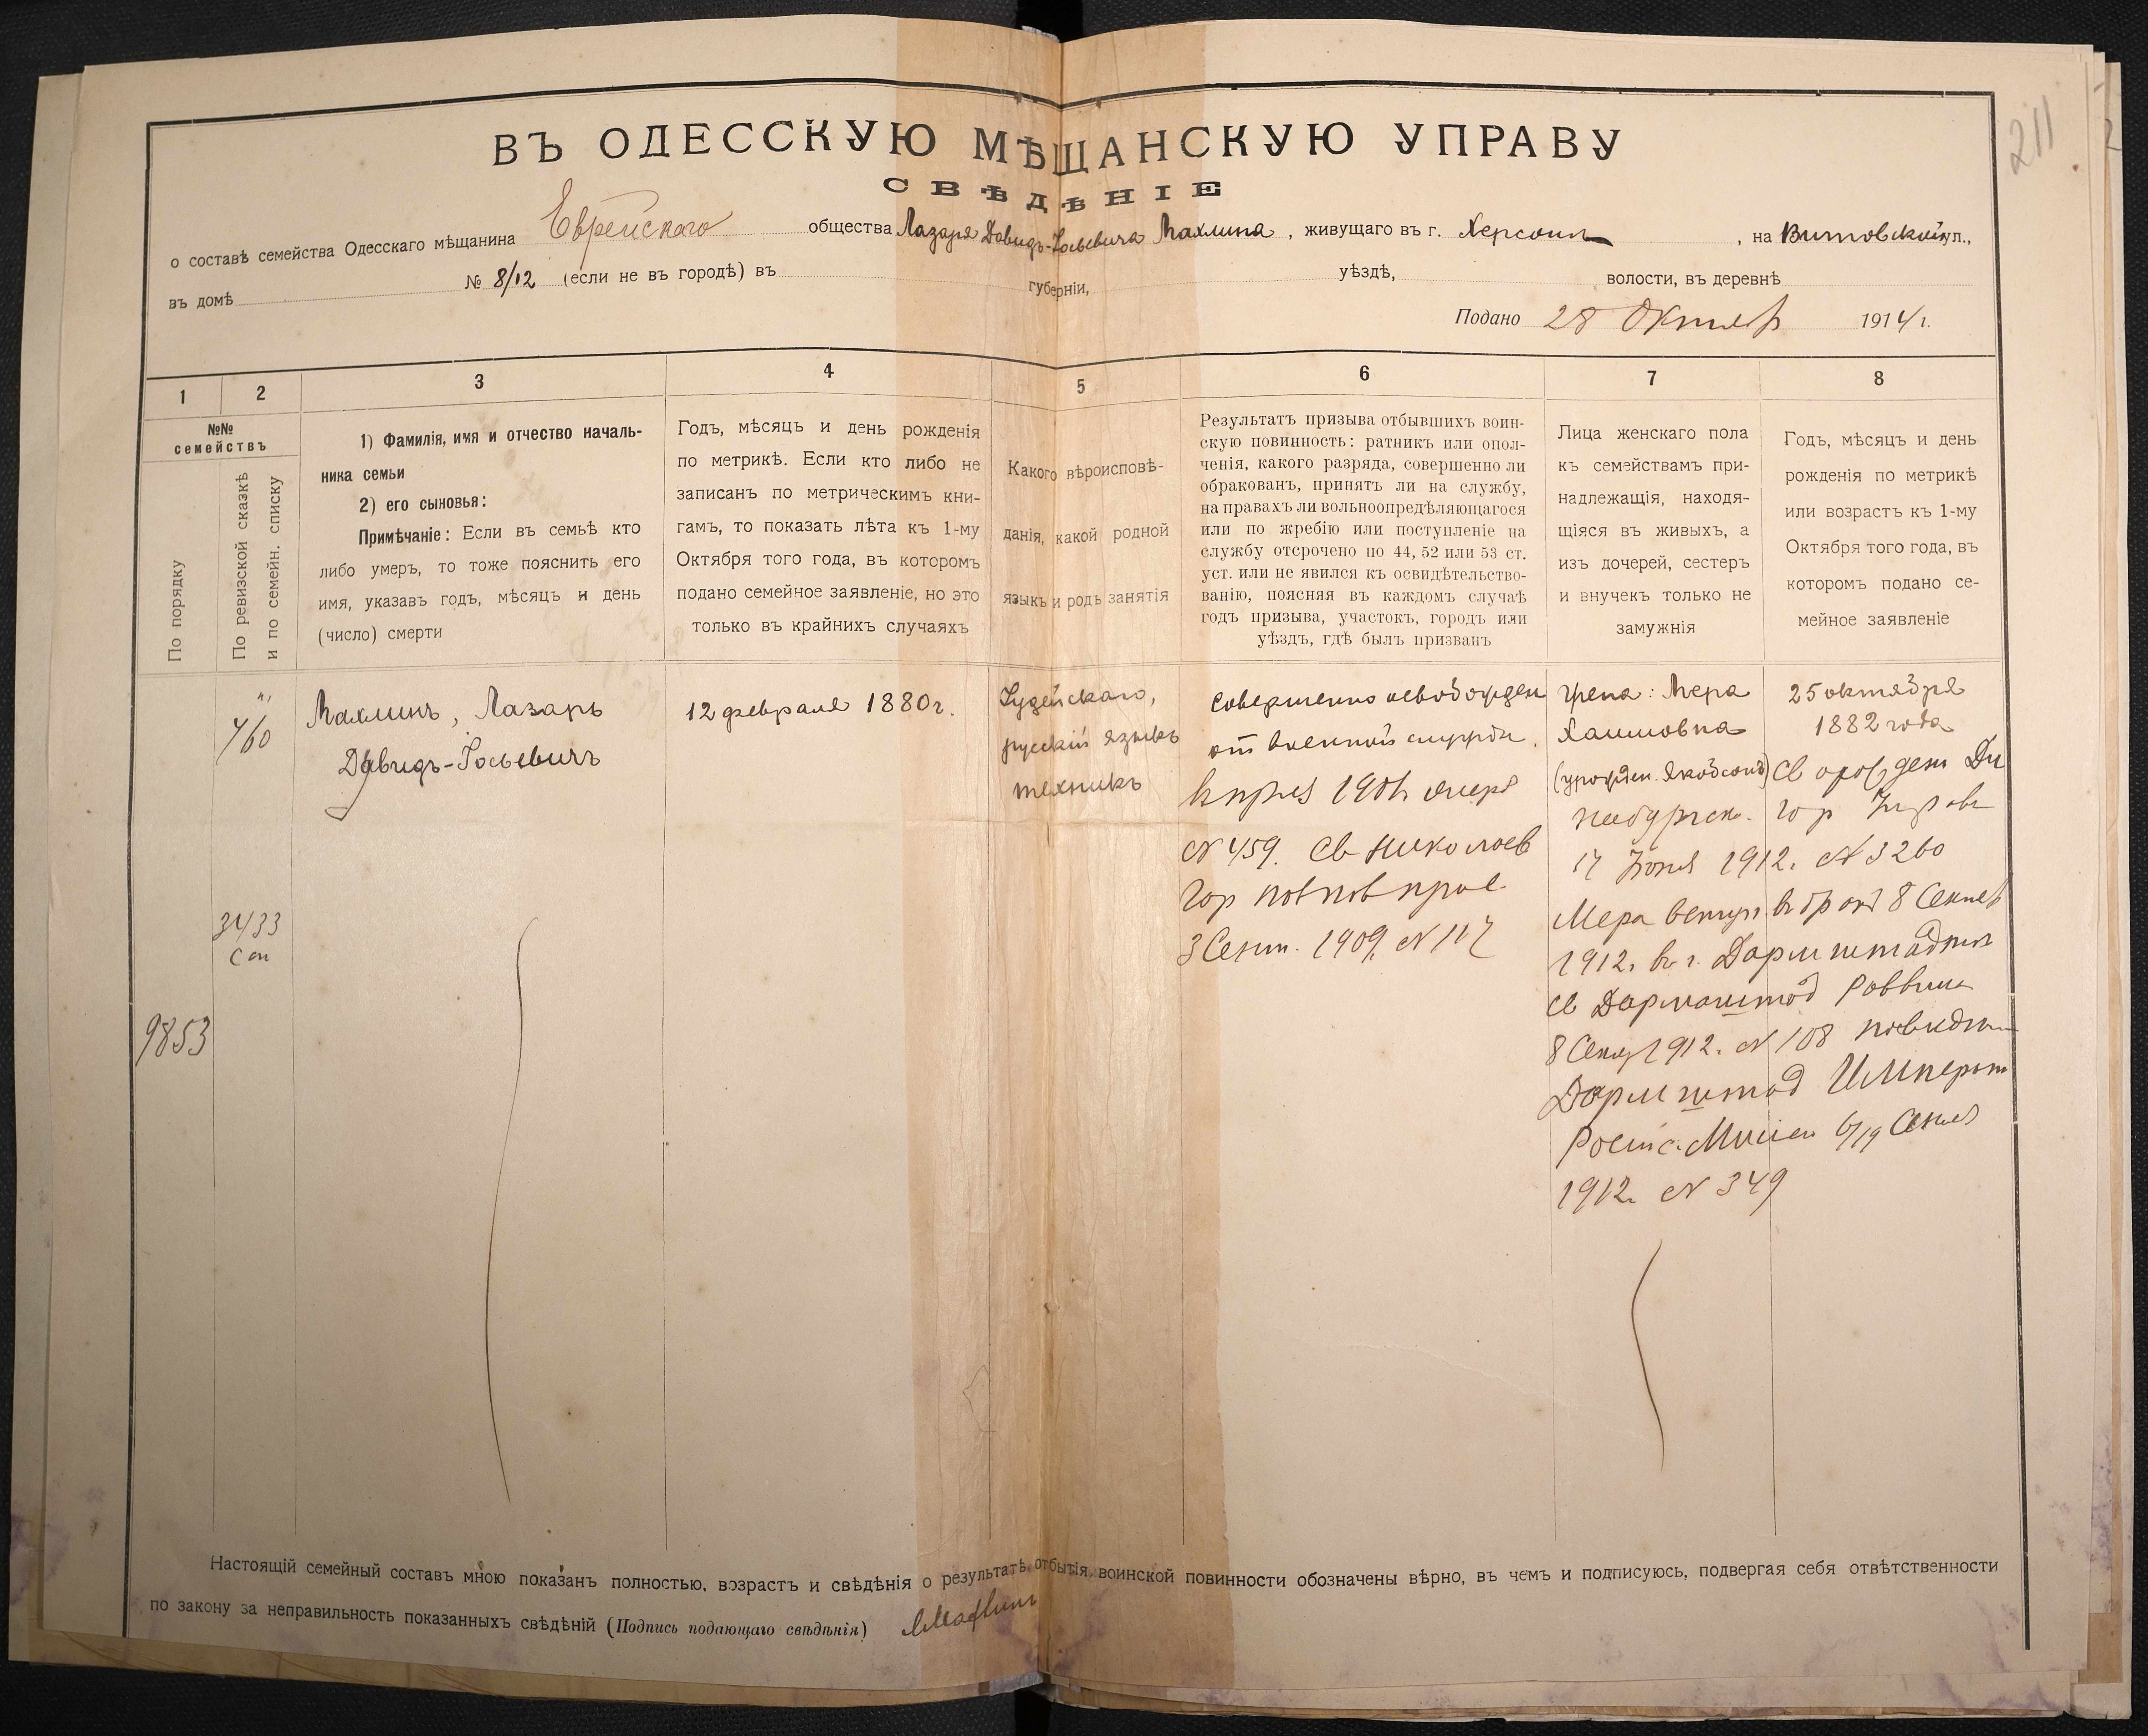 211
ВЪ ОДЕССКУЮ МѢЩАНСКУЮ УПРАВУ
СВѢДѢНІЕ
о составѣ семейства Одесскаго мѣщанина Еврейскаго общества Лазаря Давидъ-Іосьевича Махлина, живущаго въ г. Херсонѣ, на Витовской ул.,
въ домѣ № 8/12 (если не въ городѣ) въ губерніи, уѣздѣ, волости, въ деревнѣ
Подано 28 Октяб 1914 г.
1
2
3
4
5
6
7
8
№№
семействъ
По порядку
По ревизской сказкѣ
и по семейн. списку
1) Фамилія, имя и отчество началь-
ника семьи
2) его сыновья:
Примѣчаніе: Если въ семьѣ кто
либо умеръ, то тоже пояснить его
имя, указавъ годъ, мѣсяцъ и день
(число) смерти
Годъ, мѣсяцъ и день рожденія
по метрикѣ. Если кто либо не
записанъ по метрическимъ кни-
гамъ, то показать лѣта къ 1-му
Октября того года, въ которомъ
подано семейное заявленіе, но это
только въ крайнихъ случаяхъ
Какого вѣроисповѣ-
данія, какой родной
языкъ и родъ занятія
Результатъ призыва отбывшихъ воин-
скую повинность: ратникъ или опол-
ченія, какого разряда, совершенно ли
обракованъ, принятъ ли на службу,
на правахъ ли вольноопредѣляющагося
или по жребію или поступленіе на
службу отсрочено по 44, 52 или 53 ст.
уст. или не явился къ освидѣтельство-
ванію, поясняя въ каждомъ случаѣ
годъ призыва, участокъ, городъ или
уѣздъ, гдѣ былъ призванъ
Лица женскаго пола
къ семействамъ при-
надлежащія, находя-
щіяся въ живыхъ, а
изъ дочерей, сестеръ
и внучекъ только не
замужнія
Годъ, мѣсяцъ и день
рожденія по метрикѣ
или возрастъ къ 1-му
Октября того года, въ
которомъ подано се-
мейное заявленіе
460
3433
Сп
9853
Махлинъ, Лазарь
Давидъ-Іосьевичъ
12 февраля 1880 г.
Іудейскаго,
русскій языкъ
техникъ
совершенно освобожден
от военной службы.
1901
№ 459. Св Николаев
Гор по воп прис
3 Сент. 1909. № 117
жена: Мера
Хаимовна
(урожден. Якобсонъ)
25 октября
1882 года
Св о рожден Ди
набургск. Гор Разв
17 Іюня 1912. № 3260
Мера вступ в брак 8 Сентяб
1912. в г. Дармштадт
св Дармштад Раввин
8 Сент 1912. № 108
Дармштад Императ
Россійс. Миссіи 6/19 Сентяб
1912. № 349
Настоящій семейный составъ мною показанъ полностью, возрастъ и свѣдѣнія о результатѣ отбытія воинской повинности обозначены вѣрно, въ чемъ и подписуюсь, подвергая себя отвѣтственности
по закону за неправильность показанныхъ свѣдѣній (Подпись подающаго свѣдѣнія) ЛМахлинъ